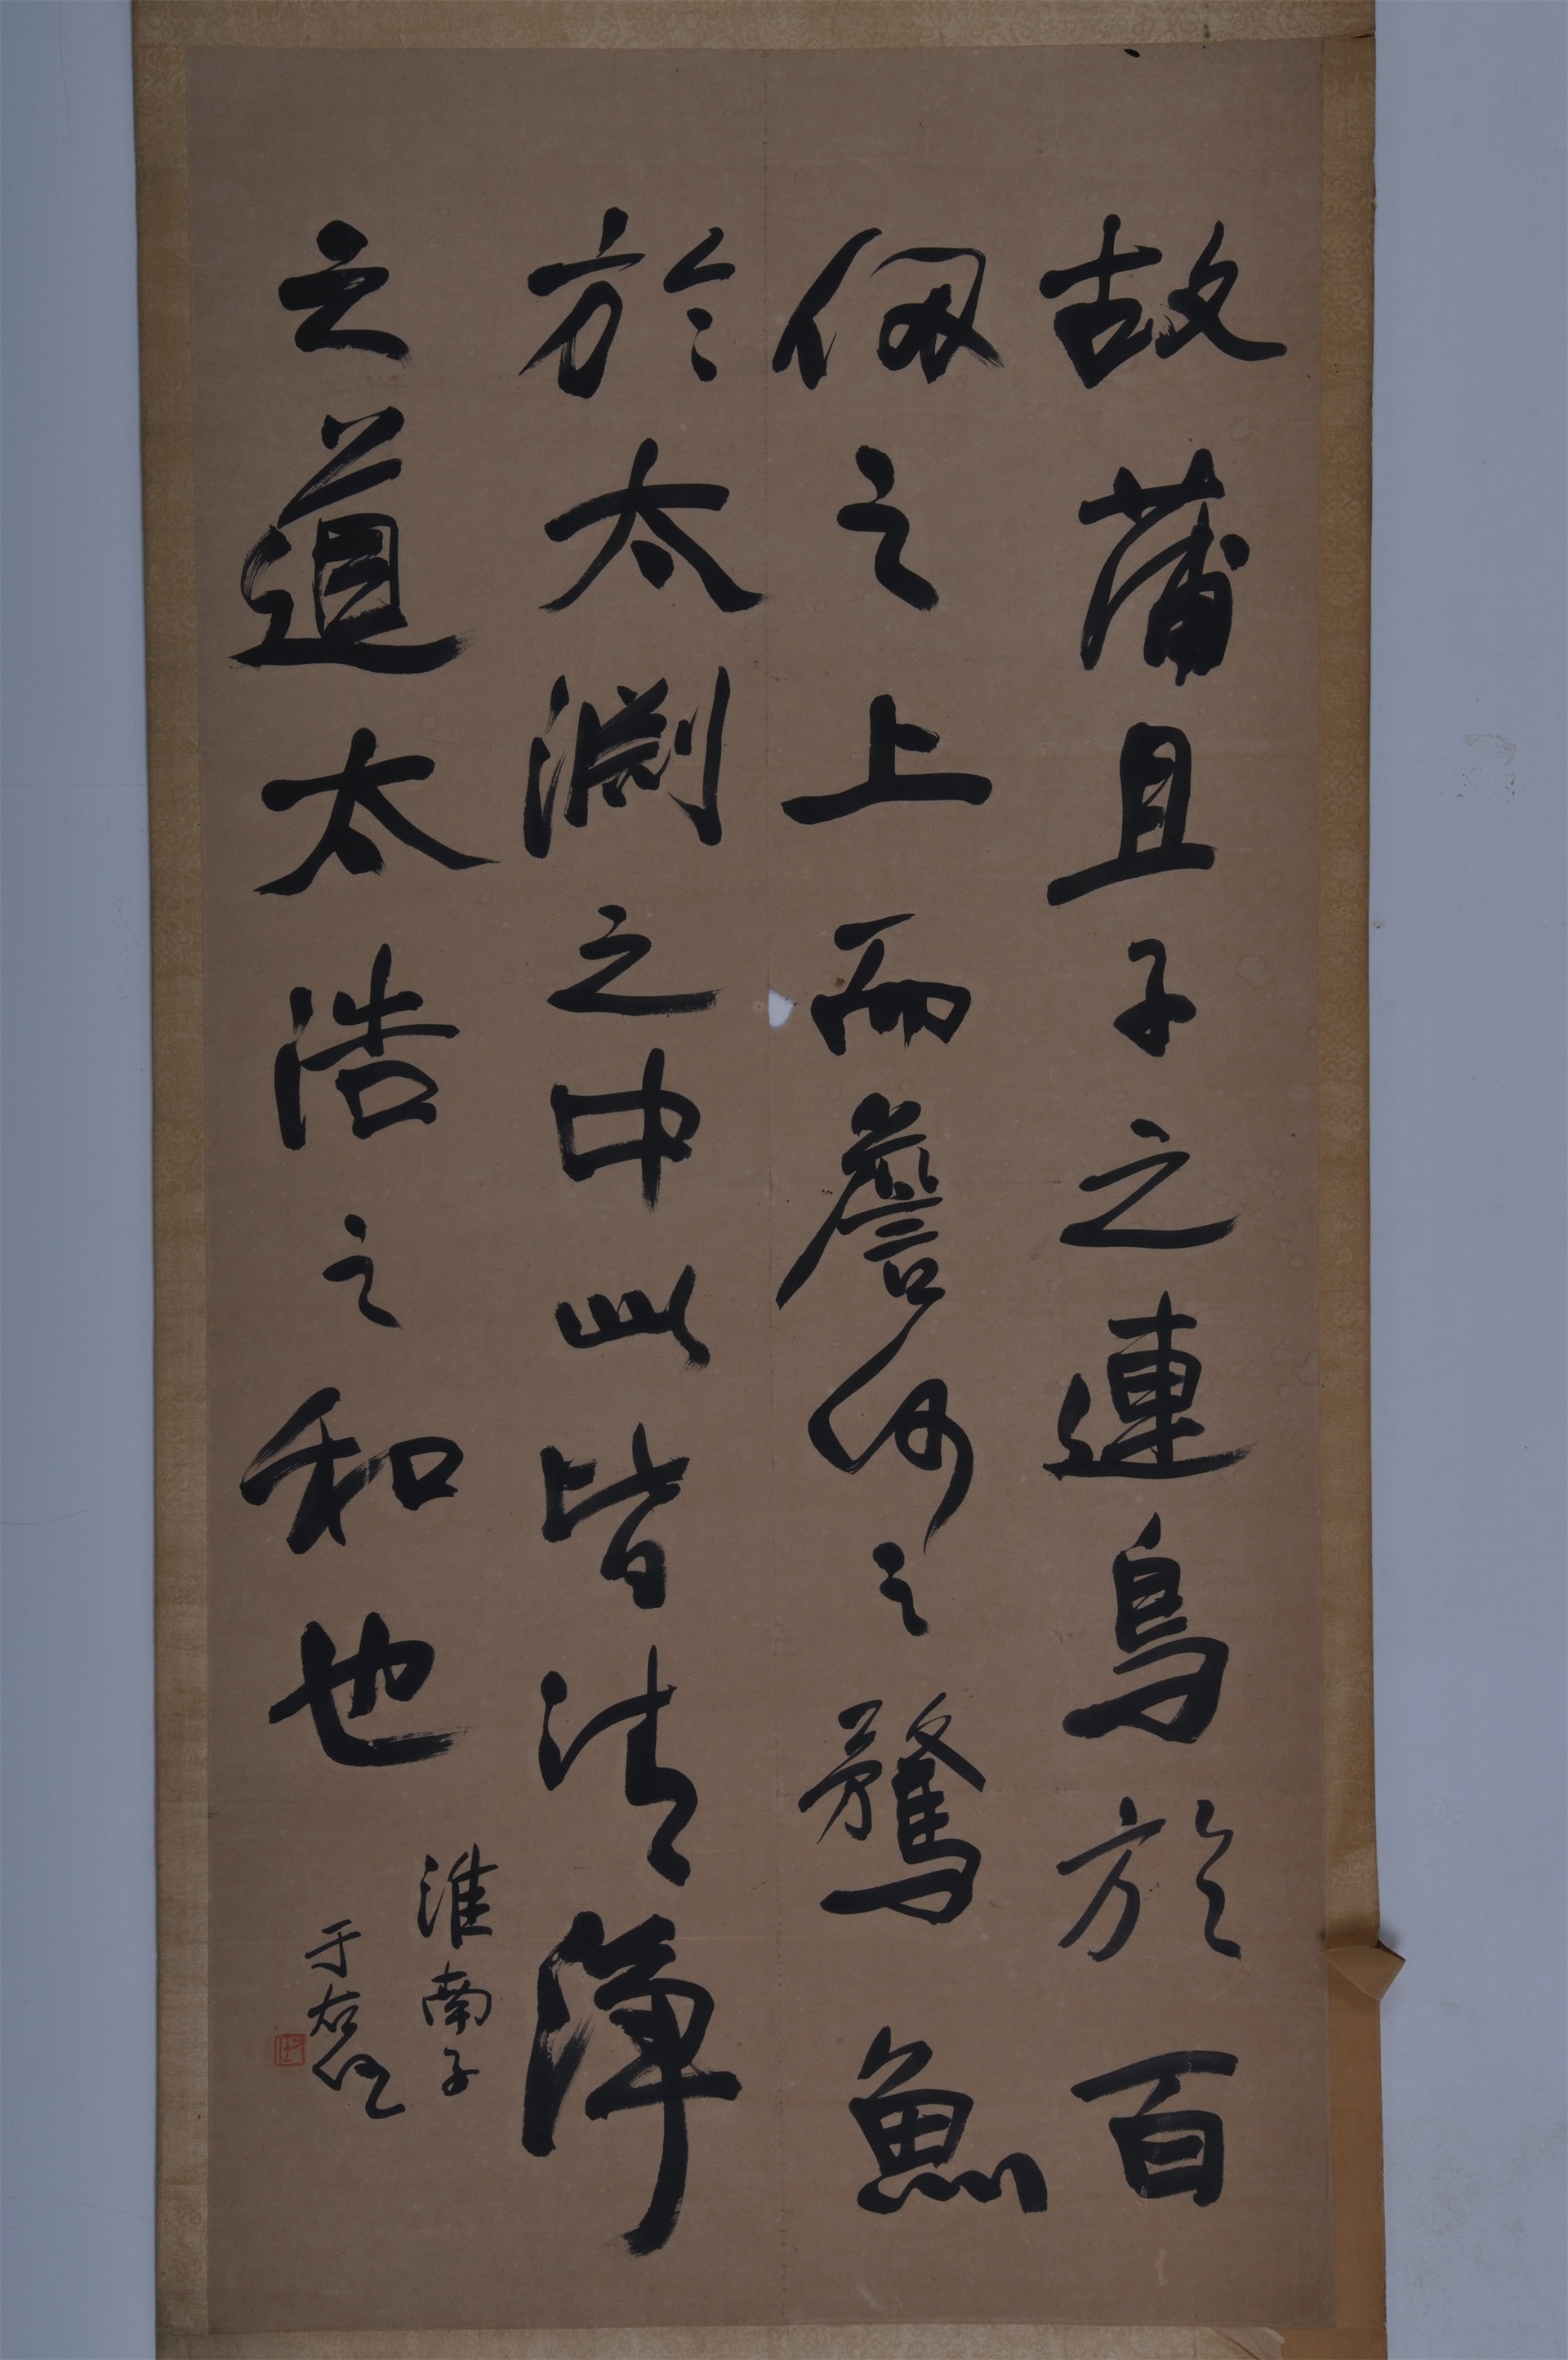 故蒲且子之連鳥於百
仞之上而詹何之騖魚
於太淵之中此皆清淨
之道太浩之和也
淮南子
于右任
右任